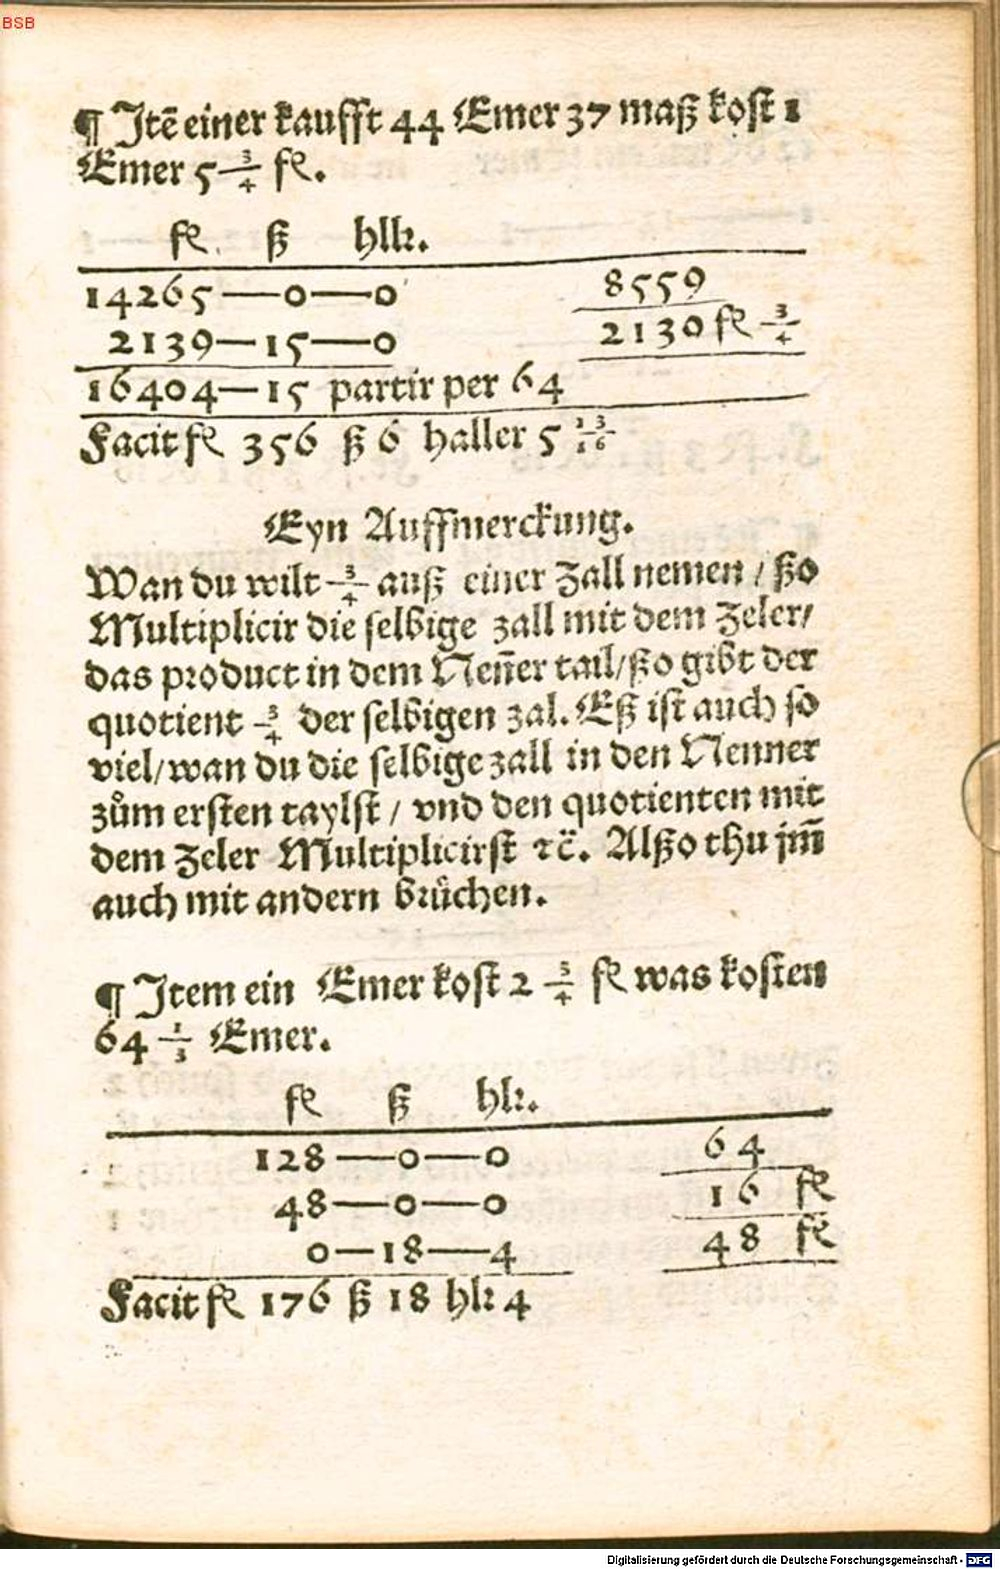 BSB
¶ Jtē einer kaufft 44 Emer 37 maß kost 1
Emer 5 3/4 fl.
fl. ß hllr.
14265—0—0 8559
2139—15—0 2130 fl 3/4
16404—15 partir per 64
Facit fl 356 ß 6 haller 5 13/16
Eyn Auffmerckung.
Wan du wilt 3/4 auß einer zall nemen / ßo
Multiplicir die selbige zall mit dem zeler/
das product in dem Neñer tail/ ßo gibt der
quotient 3/4 der selbigen zal. Eß ist auch so
viel/ wan du die selbige zall in den Nenner
zům ersten taylst / vnd den quotienten mit
dem zeler Multiplicirst ꝛc̈. Alßo thu jm̄
auch mit andern brüchen.
¶ Jtem ein Emer kost 2 3/4 fl was kosten
64 1/3 Emer.
fl ß hlr.
128—0—0 64
48—0—0 16 fl
0—18—4 48 fl
Facit fl 176 ß 18 hlr 4
Digitalisierung gefördert durch die Deutsche Forschungsgemeinschaft - DFG